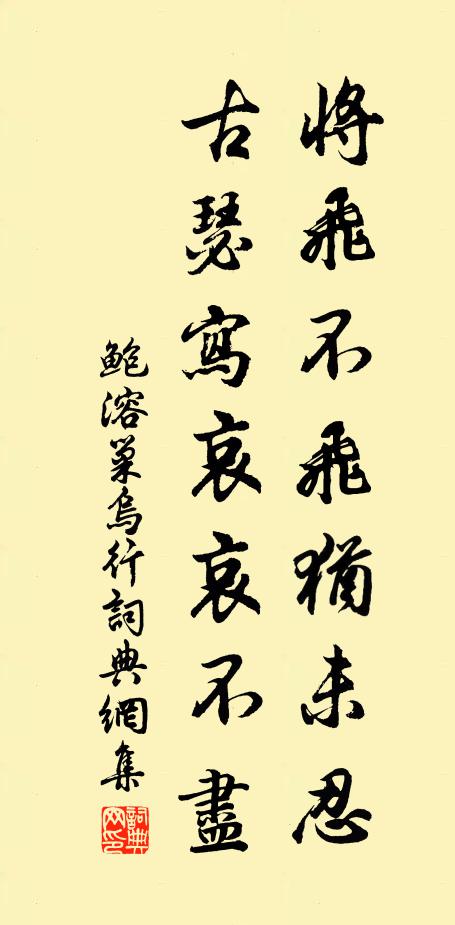 將飛不飛猶未忍
古瑟寫哀哀不盡
鮑溶巢烏行詞典網集
詞典
网印